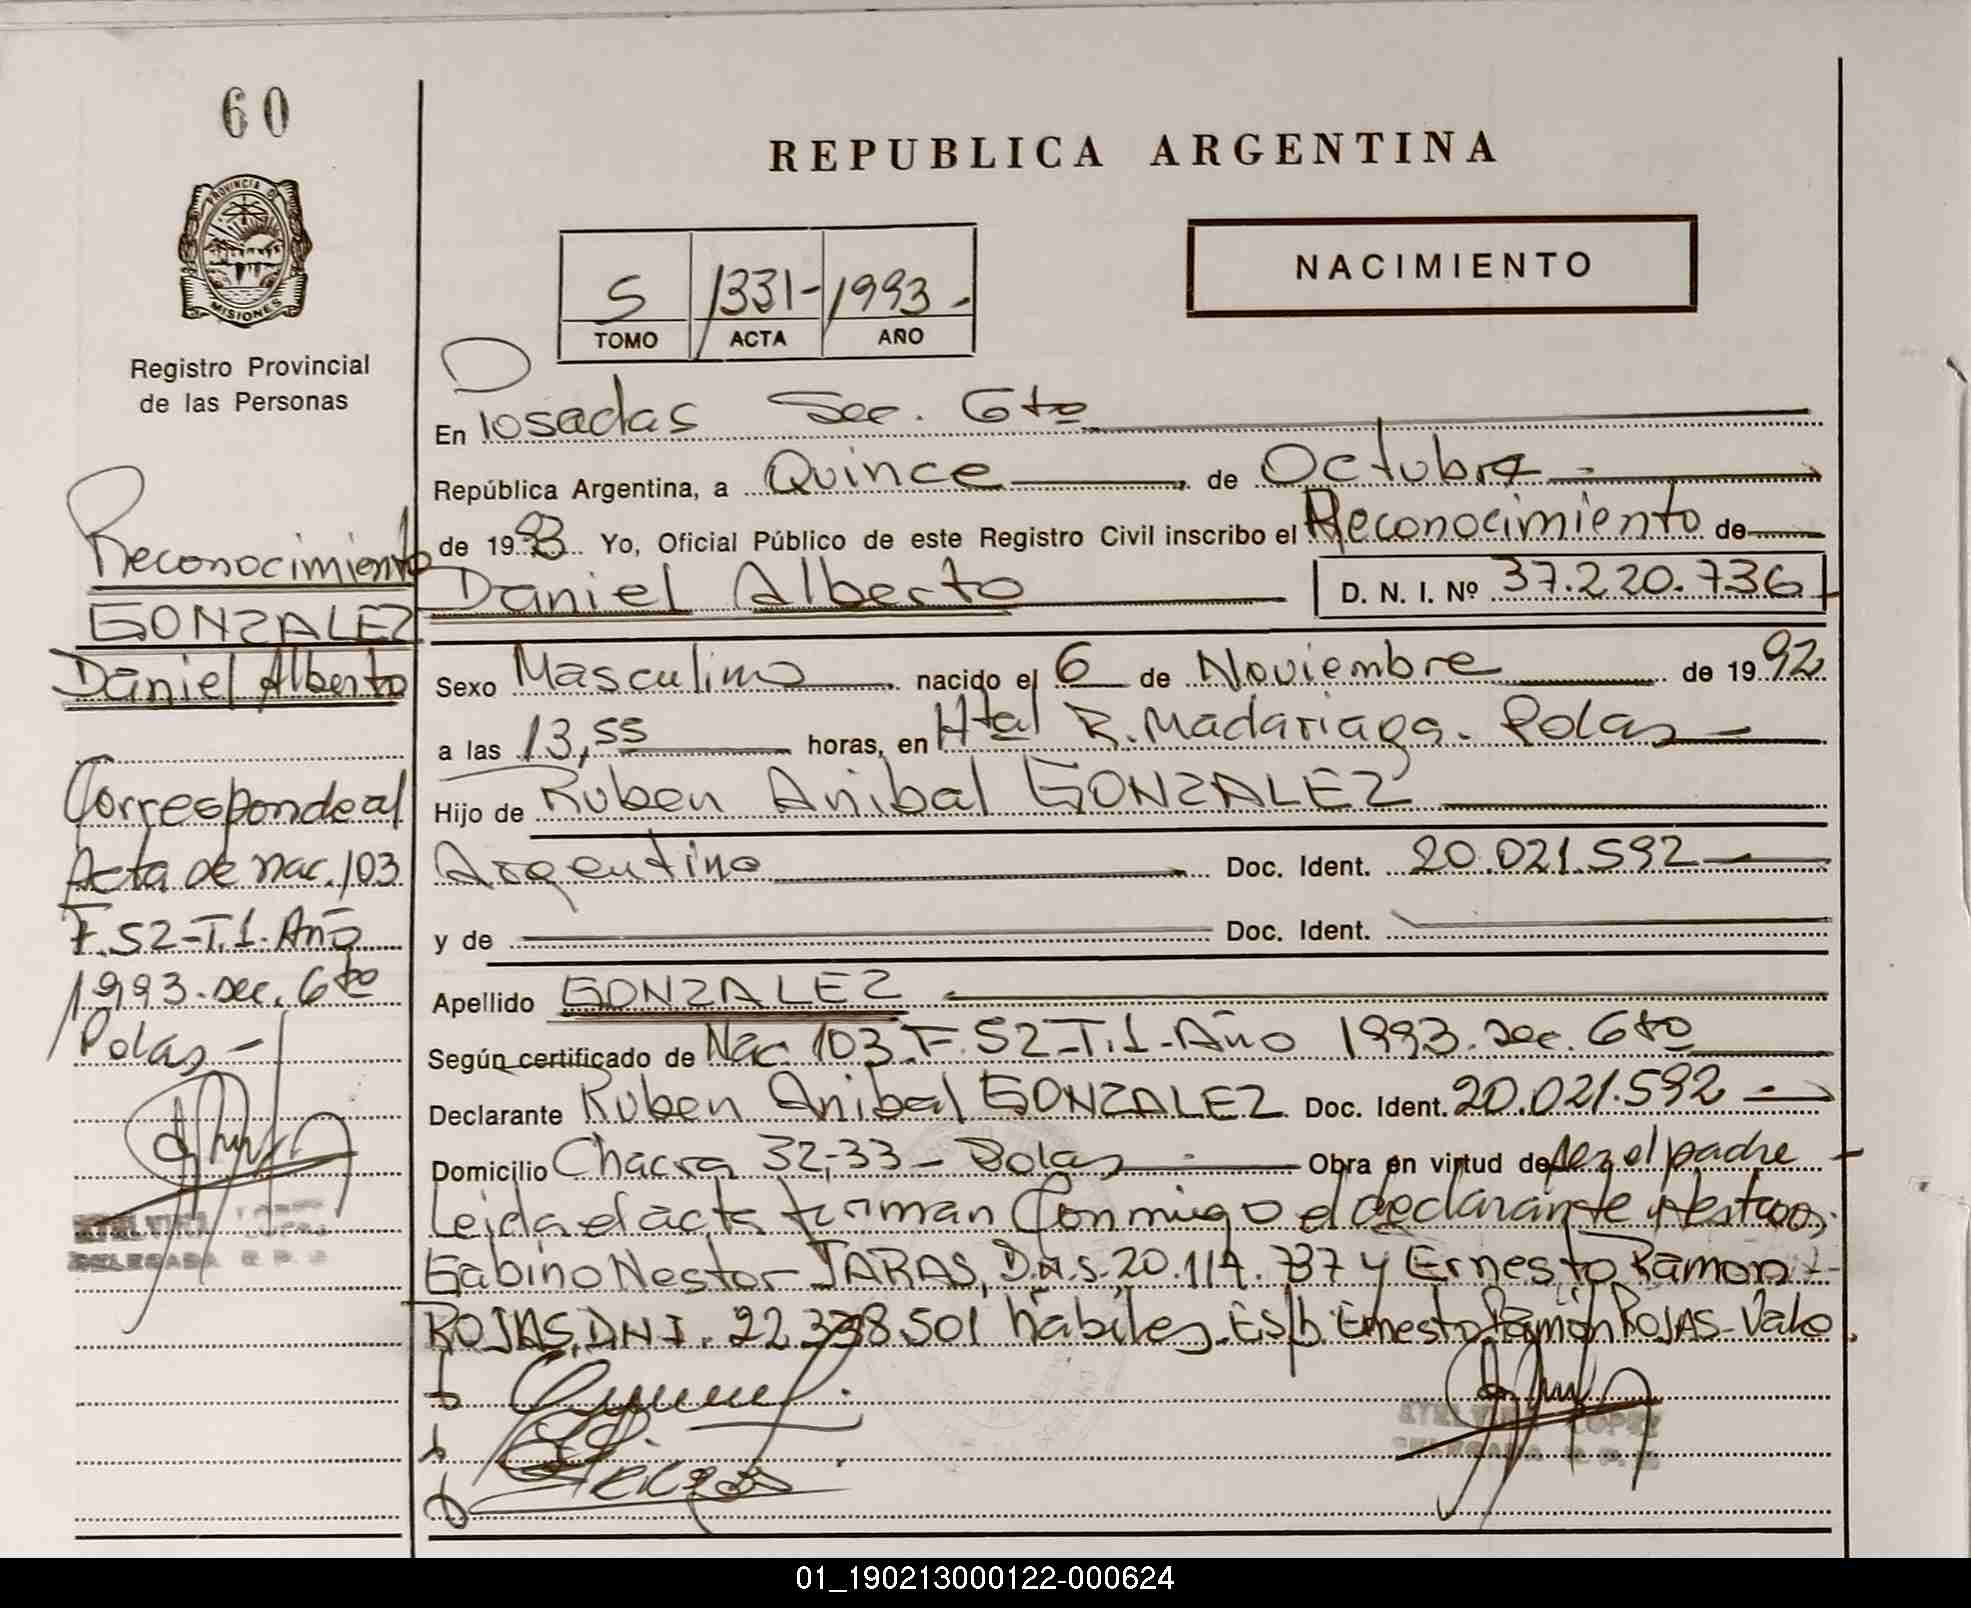 60
PROVINCIA D
MISIONES
Registro Provincial
de las Personas
Reconocimiento
GONZALEZ
Daniel Alberto
Corresponde al
Acta de nac. 103
F. 52-T.1-Año
1993. sec. 6to
Pdas -
REPUBLICA ARGENTINA
NACIMIENTO
5 1331- 1993-
TOMO ACTA AÑO
En Posadas Sec. 6to
República Argentina, a Quince de Octubre
de 1993 Yo, Oficial Público de este Registro Civil inscribo el Reconocimiento de
Daniel Alberto D. N. I. Nº 37.220.736
Sexo Masculino nacido el 6 de Noviembre de 1992
a las 13,55 horas, en Htal R. Madariaga. Pdas
Hijo de Ruben Anibal GONZALEZ
Argentino Doc. Ident. 20.021.592
y de Doc. Ident.
Apellido GONZALEZ
Según certificado de Nac 103 F. 52-T.1-Año 1993. sec. 6to
Declarante Ruben Anibal GONZALEZ Doc. Ident. 20.021.592
Domicilio Chacra 32,33 - Pdas Obra en virtud de ser el padre
Leida el acta firman Conmigo el declarante y testigos,
Gabino Nestor JARAS, 20.117.737 y Ernesto Ramon
ROJAS, DNI. 22.338.501 habiles. Es/b Ernesto Ramón ROJAS-Vale
LOPEZ
DELEGADA
01_190213000122-000624